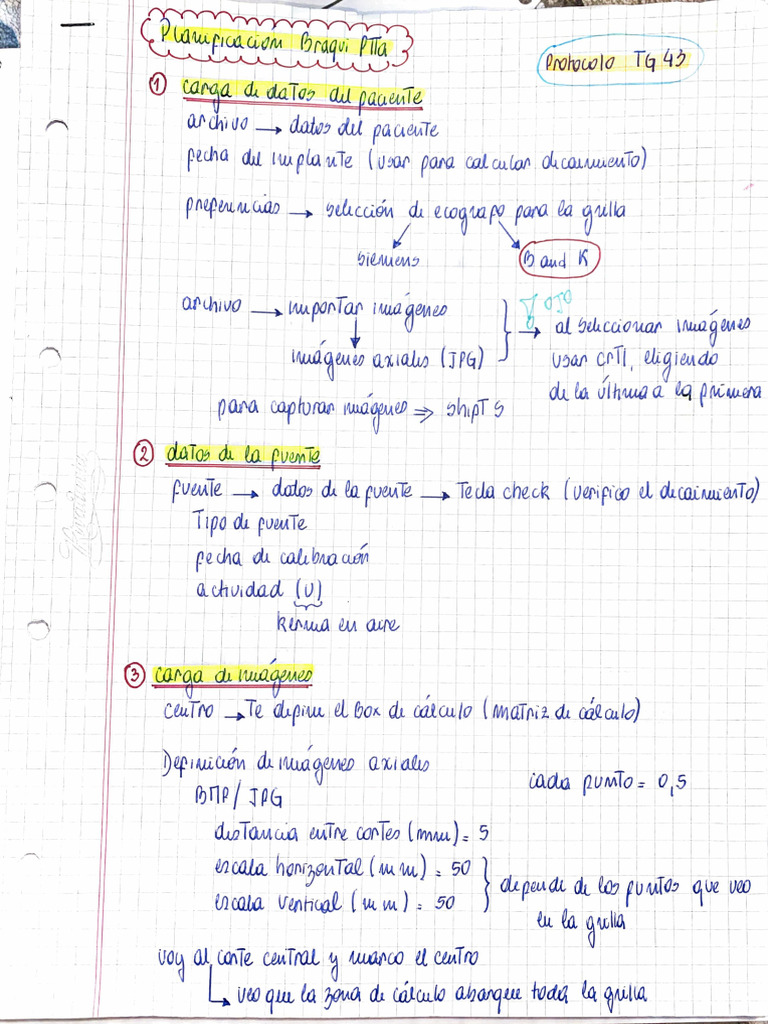 Planificación Braqui PTTa
Protocolo TG 43
① carga de datos del paciente
archivo → datos del paciente
fecha del implante (usar para calcular decaimiento)
preferencias → selección de ecografo para la grilla
siemens B and K
archivo → importar imágenes
OJO
→ al seleccionar imágenes
imágenes axiales (JPG)
usar CTRL, eligiendo
de la última a la primera
para capturar imágenes ⇒ shift S
② datos de la fuente
fuente → datos de la fuente → Tecla check (verifico el decaimiento)
Tipo de fuente
fecha de calibración
actividad (U)
kerma en aire
③ carga de imágenes
centro → Te define el box de cálculo (matriz de cálculo)
Definición de imágenes axiales
cada punto = 0,5
BMP/JPG
distancia entre cortes (mm) = 5
escala horizontal (mm) = 50
escala vertical (mm) = 50
depende de los puntos que veo
en la grilla
voy al corte central y marco el centro
→ veo que la zona de cálculo abarque toda la grilla